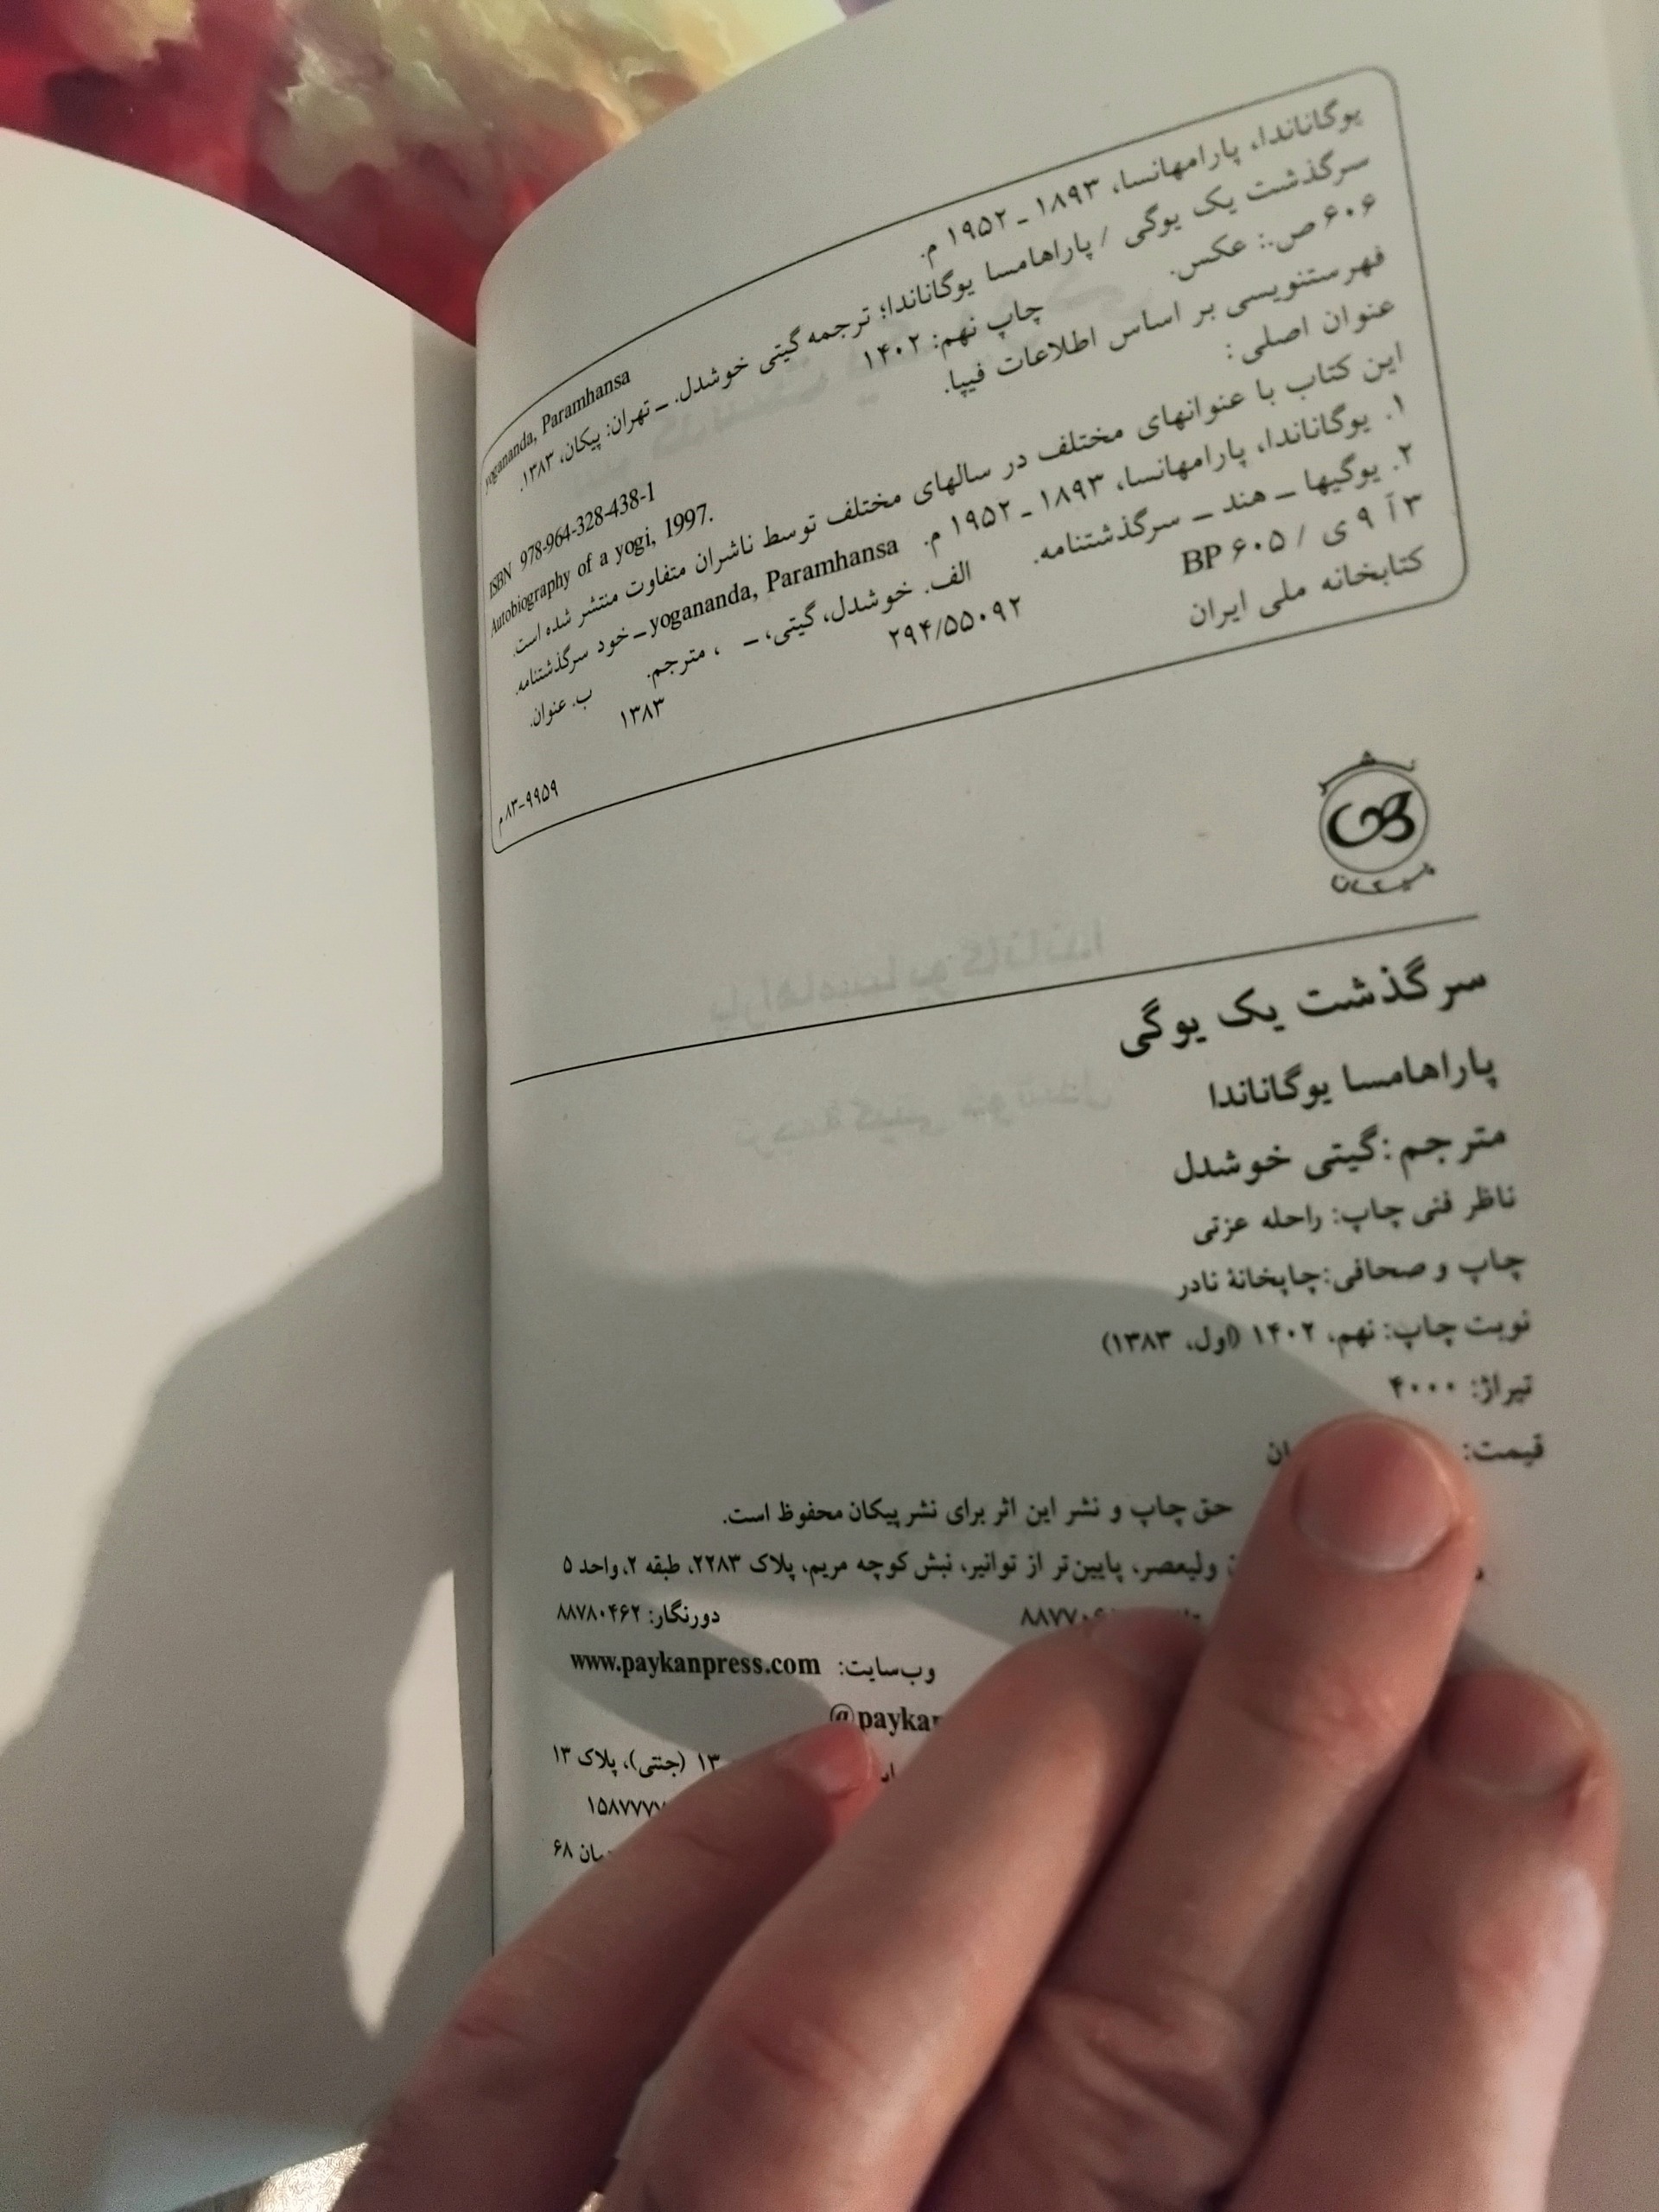 یوگاناندا، پارامهانسا، ۱۸۹۳ ـ ۱۹۵۲ م. yogananda, Paramhansa
سرگذشت یک یوگی / پاراهامسا یوگاناندا؛ ترجمه گیتی خوشدل. ـ تهران: پیکان، ۱۳۸۳.
۶۰۶ ص.: عکس. چاپ نهم: ۱۴۰۲ ISBN 978-964-328-438-1
فهرستنویسی بر اساس اطلاعات فیپا.
عنوان اصلی: Autobiography of a yogi, 1997.
این کتاب با عنوانهای مختلف در سالهای مختلف توسط ناشران متفاوت منتشر شده است.
۱. یوگاناندا، پارامهانسا، ۱۸۹۳ ـ ۱۹۵۲ م. yogananda, Paramhansa ـ خود سرگذشتنامه.
۲. یوگیها ـ هند ـ سرگذشتنامه. الف. خوشدل، گیتی، ـ ، مترجم. ب. عنوان.
۳ آ ۹ ی / ۶۰۵ BP ۲۹۴/۵۵۰۹۲ ۱۳۸۳
کتابخانه ملی ایران ۹۹۵۹-۸۳م
پیکان
سرگذشت یک یوگی
پاراهامسا یوگاناندا
مترجم: گیتی خوشدل
ناظر فنی چاپ: راحله عزتی
چاپ و صحافی: چاپخانهٔ نادر
نوبت چاپ: نهم، ۱۴۰۲ (اول، ۱۳۸۳)
تیراژ: ۴۰۰۰
قیمت:
حق چاپ و نشر این اثر برای نشر پیکان محفوظ است.
ولیعصر، پایین‌تر از توانیر، نبش کوچه مریم، پلاک ۲۲۸۳، طبقه ۲، واحد ۵
دورنگار: ۸۸۷۸۰۴۶۲
وب‌سایت: www.paykanpress.com
@paykan
۱۳ (جنتی)، پلاک ۱۳
۱۵۸۷۷۷۷
۶۸